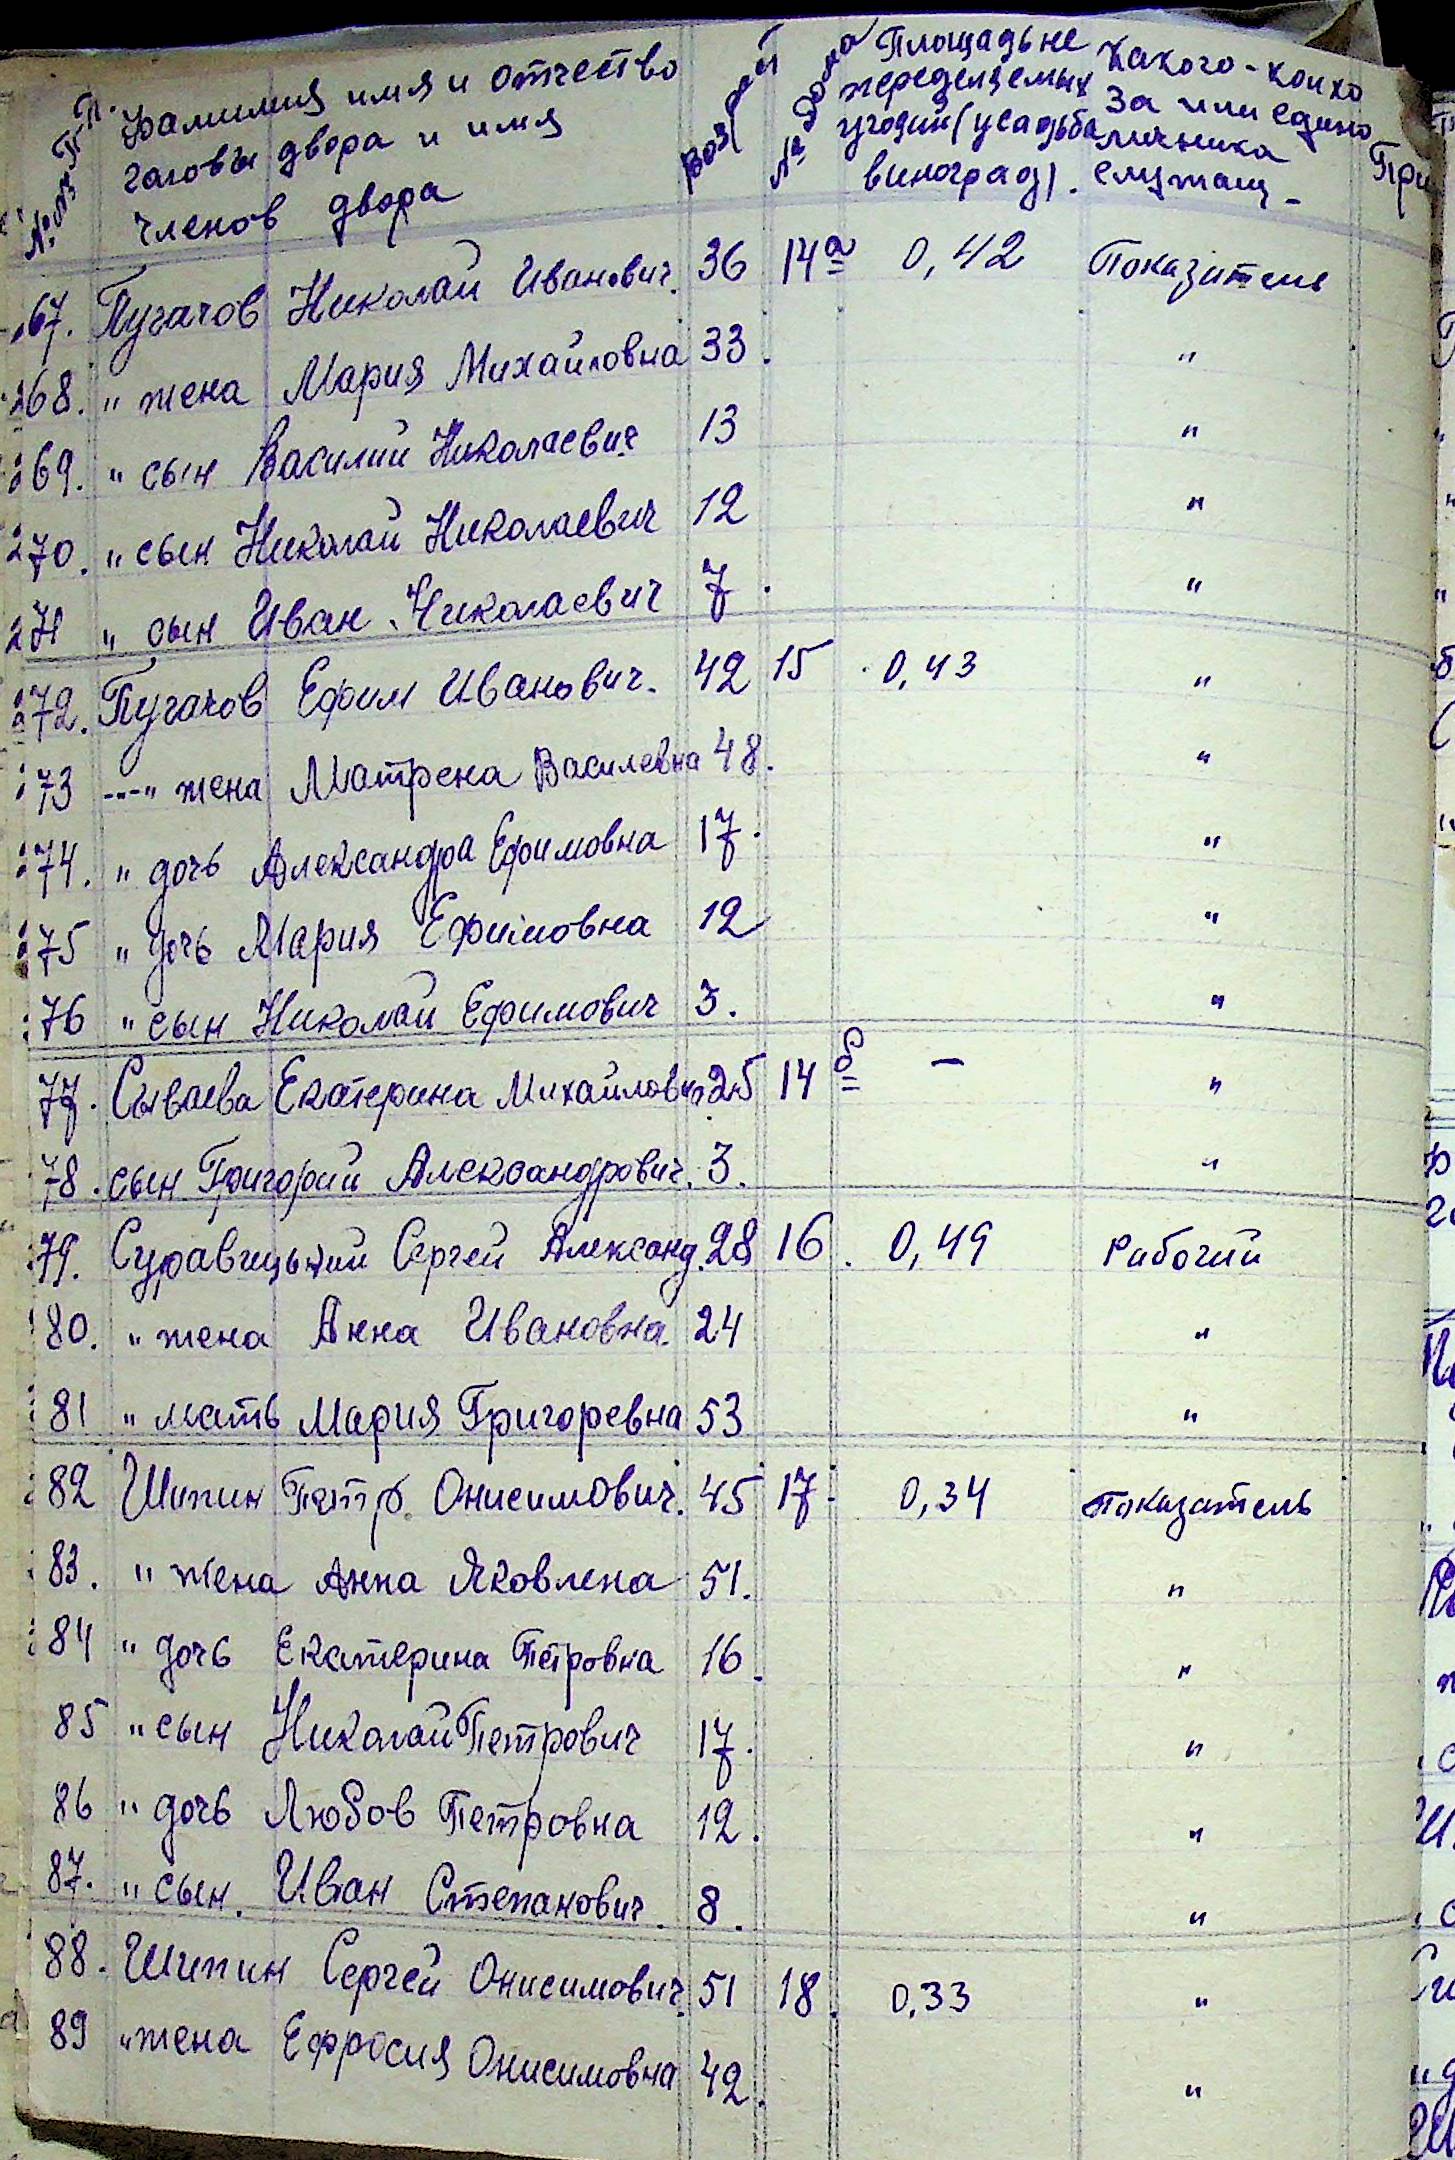 №№ П.П. Фамилия имя и отчество главы двора и имя членов двора Возраст № дома Площадь не переделяемых угодий (усадьба виноград). Какого-колхоза или единоличника служащ- При
267. Пугачов Николай Иванович. 36 14а 0,42 Показитель
268. " жена Мария Михайловна 33. "
269. " сын Василий Николаевич 13 "
270. " сын Николай Николаевич 12 "
271 " сын Иван Николаевич 7. "
272. Пугачов Ефим Иванович. 42 15 0,43 "
273 ---" жена Матрена Василевна 48. "
274. " дочь Александра Ефимовна 17. "
275 " дочь Мария Ефимовна 12 "
76 " сын Николай Ефимович 3. "
77. Сываева Екатерина Михайловна 25 14б — "
78. сын Григорий Александрович. 3. "
79. Сергей Александ. 28 16. 0,49 Рабочий
80. " жена Анна Ивановна. 24 "
81 " мать Мария Григоревна 53 "
82 Шипин Петр. Онисимович. 45 17. 0,34 Показатель
83. " жена Анна Яковлена 51. "
84 " дочь Екатерина Петровна 16. "
85 " сын Николай Петрович 17. "
86 " дочь Любов Петровна 12. "
87. " сын. Иван Степанович. 8. "
88. Шипин Сергей Онисимович. 51 18. 0,33 "
89 " жена Ефросия Онисимовна 42. "